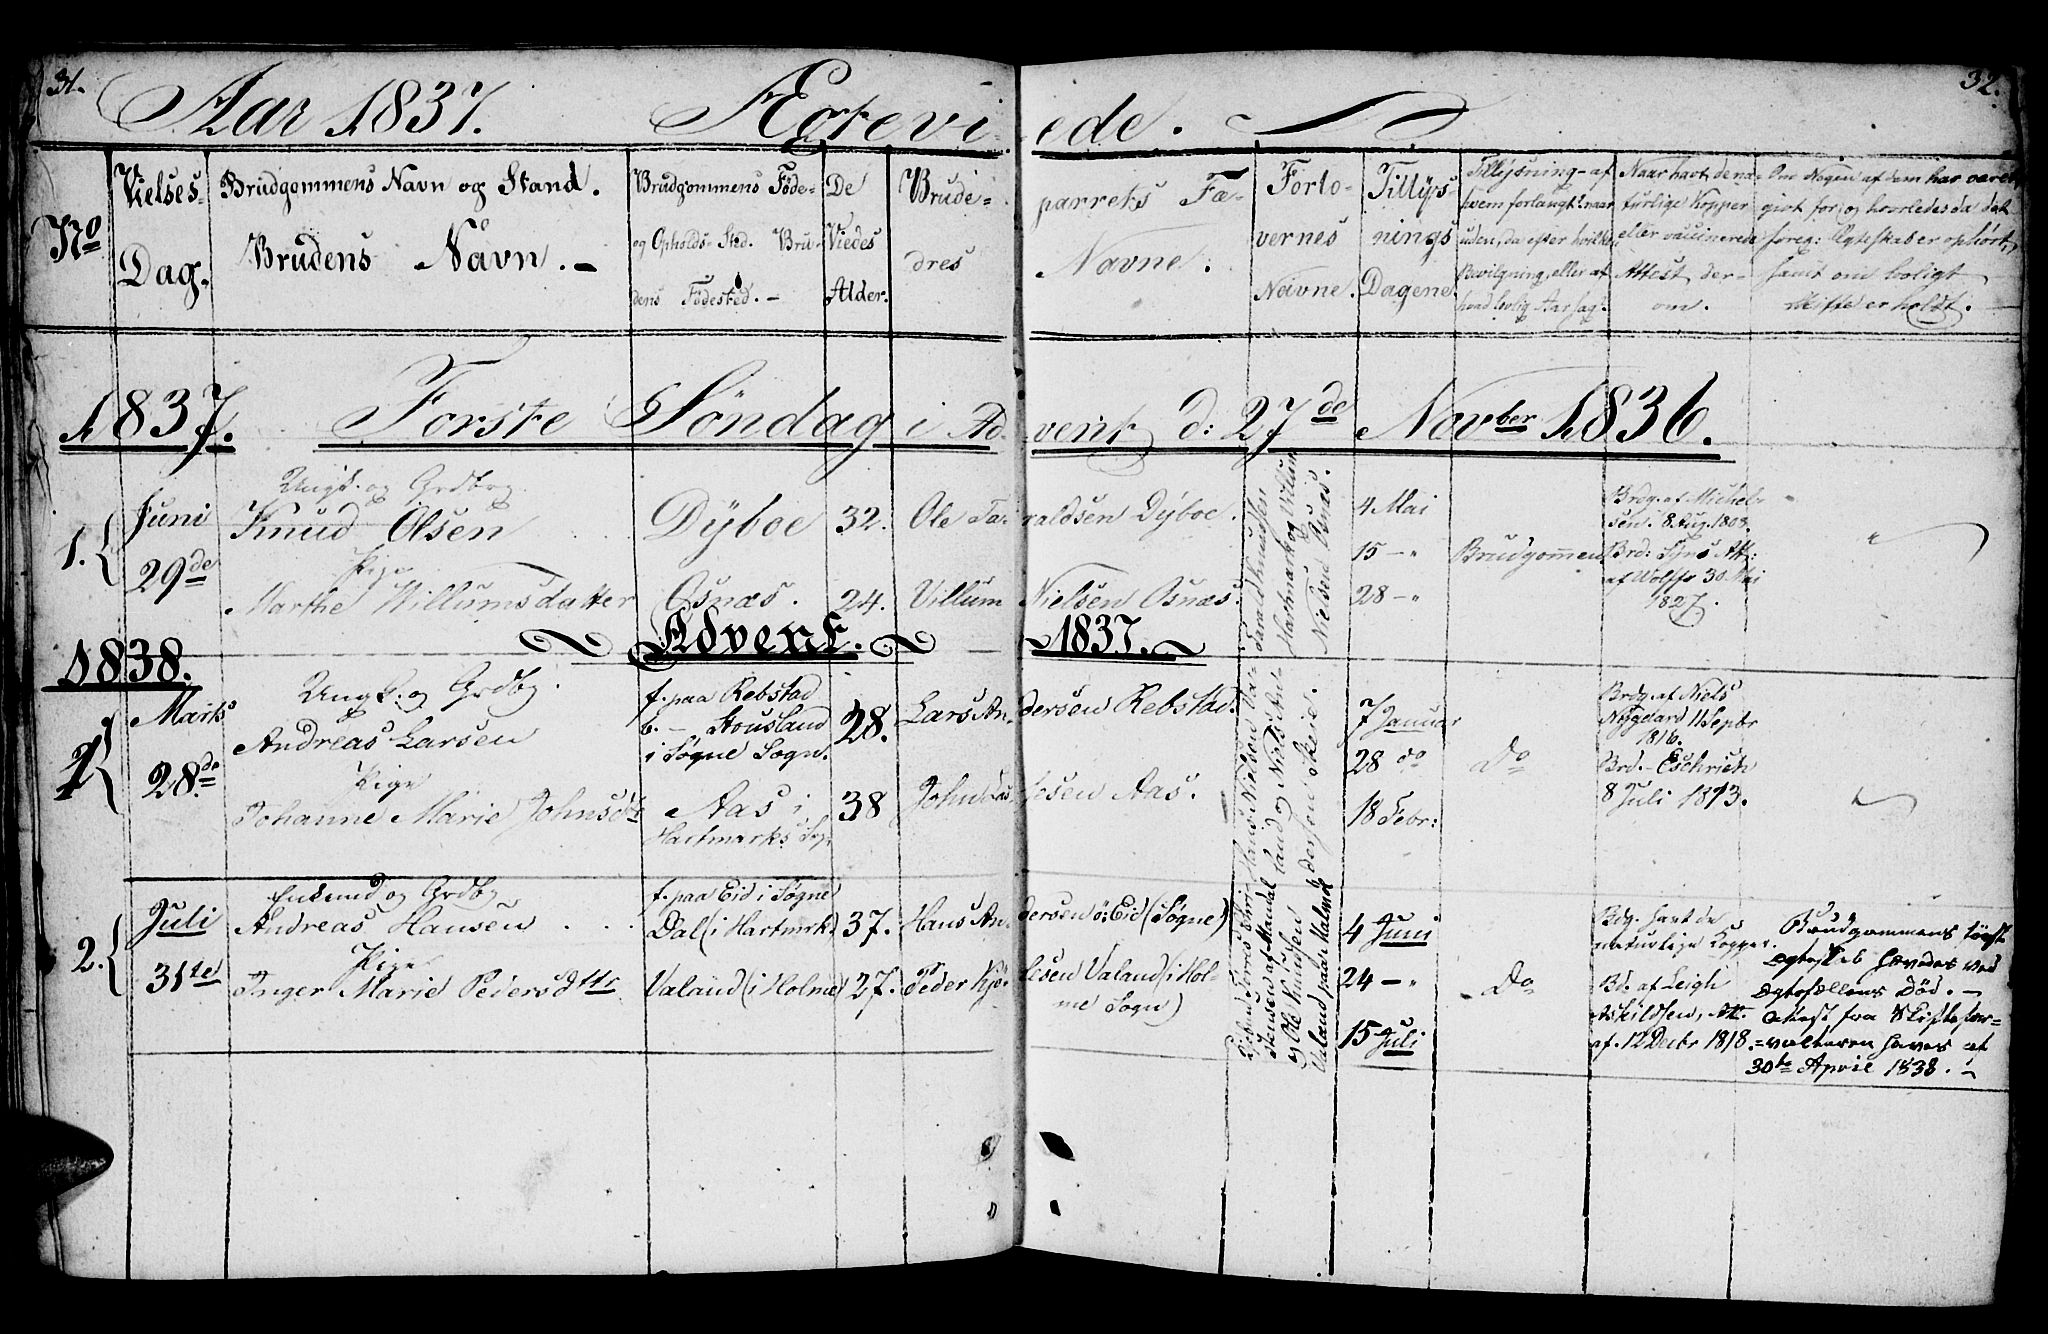 31.
Aar 1837. Ægtevi-
ede.
32.
No
Vielses-
Dag.
Brudgommens Navn og Stand.
Brudens Navn.
Brudgommens Föde-
og Opholds-Sted. Bru-
dens Födested.
De
Viedes
Alder.
Brude-
dres
parrets Fæ-
Navne.
Forlo-
vernes
Navne.
Tillÿs-
nings
Dagene.
Tillysning af
hvem forlangt? naar
uden, da efter hvilken
Bevilgning, eller af
hvad lovlig Aarsag?
Naar havt de na-
turlige Kopper
eller vaccinerede
Attest der-
om.
Om Nogen af dem har været
givt för, og hvorledes da det
foreg: Ægteskab er ophört,
samt om lovligt
Skifte er holdt.
1837. Förste Söndag i Ad-
vent d: 27de Novber 1836.
1.
Juni
29de
Ungk. og Grdbrg.
Knud Olsen
Pige
Marthe Willumsdatter
Dÿboe
Osnæs.
32.
24.
Ole Ta-
raldsen Dÿboe.
Villum
Nielsen Osnæs.
Tarald Knudsen
Hartmark og Vilum
Nielsen Osnæs.
4 Mai
15 — "
28 — "
Brudgommen
Brdg. af Michel-
sen. 8 Aug. 1808.
Brd: Syns Att:
af Wolff 30 Mai
1827.
"
1838. Advent.
1837.
1.
Marts
28de
Ungk. og Grdbg.
Andreas Larsen
Pige
Johanne Marie Johnsdtr
f. paa Rebstad
b. — Stousland
i Søgne Sogn.
Aas i
Hartmarks Sog.
28.
38
Lars An-
dersen Rebstad.
John
Aas.
7 Januar
28 do
18 Febr:
Do
Brdg. af Niels
Nÿgaard 11 Septbr
1816.
Brd. — Eschrich
8 Juli 1813.
"
2.
Juli
31te
Enkemd og Grdbg
Andreas Hansen
Pige
Inger Marie Pedersdtter
f. paa Eid i Søgne
Dal (i Hartmrk)
Valand (i Holme)
37.
27.
Hans An-
dersen ö: Eid (Søgne)
Peder Kjö-
lesen Valand (i Hol-
me Sogn)
og Ole Knudsen
Valand paa Halmd
4 Juni
24 — "
15 Juli
Do
Bdg. havt de
naturlige Kopper.
Bd. af Leigh
Askildsen, Att.
af 12 Decbr 1818.
Brudgommens först
Egteskab hævedes ved
Egtefællens Död. —
Attest fra Skiftefor-
valteren haves af
30te April 1838.